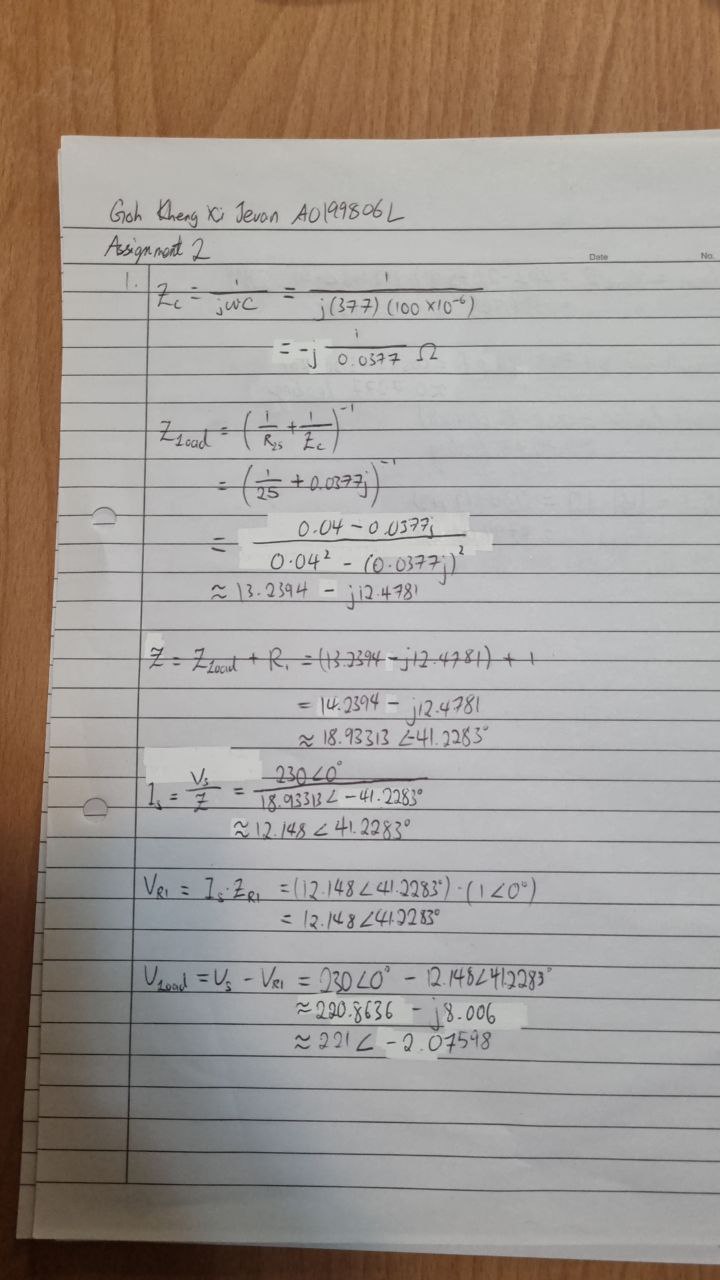 Goh Kheng Xi Jevan A0199806L
Assignment 2
Date No.
1. Z_c = 1/(jωC) = 1/(j(377)(100×10⁻⁶))
= -j 1/0.0377 Ω
Z_load = (1/R_25 + 1/Z_c)⁻¹
= (1/25 + 0.0377j)⁻¹
= (0.04 - 0.0377j)/(0.04² - (0.0377j)²)
≈ 13.2394 - j12.4781
Z = Z_load + R_1 = (13.2394 - j12.4781) + 1
= 14.2394 - j12.4781
≈ 18.93313∠-41.2283°
I_s = V_s/Z = 230∠0°/18.93313∠-41.2283°
≈ 12.148∠41.2283°
V_R1 = I_s·Z_R1 = (12.148∠41.2283°)·(1∠0°)
= 12.148∠41.2283°
V_load = V_s - V_R1 = 230∠0° - 12.148∠41.2283°
≈ 220.8636 - j8.006
≈ 221∠-2.07598